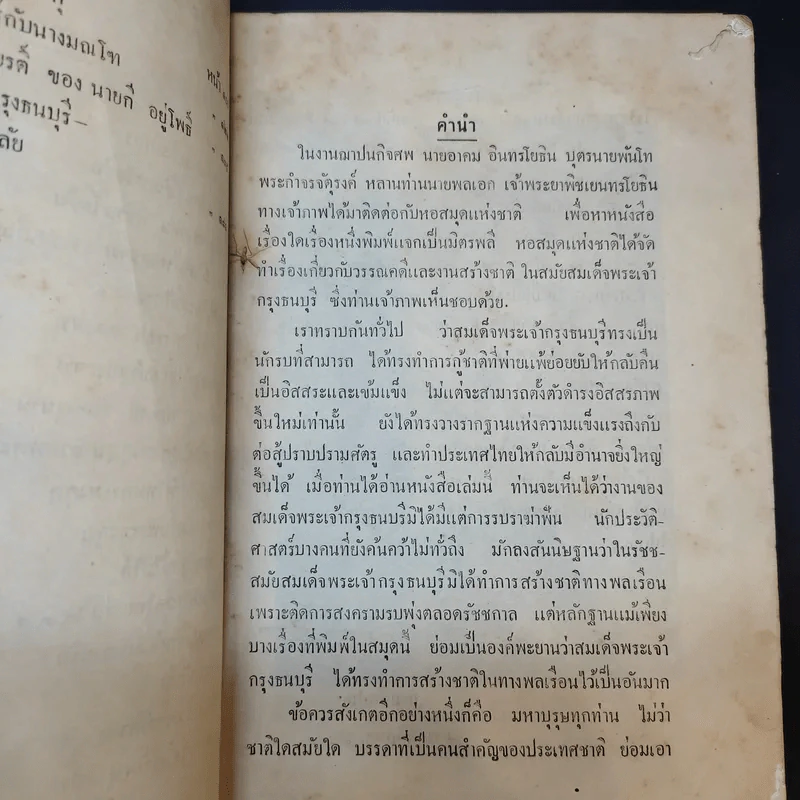 กับนางมณโฑ
หน้า
ของ นายกี อยู่โพธิ์
กรุงธนบุรี–
คำนำ
ในงานฌาปนกิจศพ นายอาคม อินทรโยธิน บุตรนายพันโท
พระกำจรจัตุรงค์ หลานท่านนายพลเอก เจ้าพระยาพิชเยนทรโยธิน
ทางเจ้าภาพได้มาติดต่อกับหอสมุดแห่งชาติ เพื่อหาหนังสือ
เรื่องใดเรื่องหนึ่งพิมพ์แจกเป็นมิตรพลี หอสมุดแห่งชาติได้จัด
ทำเรื่องเกี่ยวกับวรรณคดีและงานสร้างชาติ ในสมัยสมเด็จพระเจ้า
กรุงธนบุรี ซึ่งท่านเจ้าภาพเห็นชอบด้วย.
เราทราบกันทั่วไป ว่าสมเด็จพระเจ้ากรุงธนบุรีทรงเป็น
นักรบที่สามารถ ได้ทรงทำการกู้ชาติที่พ่ายแพ้ย่อยยับให้กลับคืน
เป็นอิสสระและเข้มแข็ง ไม่แต่จะสามารถตั้งตัวดำรงอิสสรภาพ
ขึ้นใหม่เท่านั้น ยังได้ทรงวางรากฐานแห่งความแข็งแรงถึงกับ
ต่อสู้ปราบปรามศัตรู และทำประเทศไทยให้กลับมีอำนาจยิ่งใหญ่
ขึ้นได้ เมื่อท่านได้อ่านหนังสือเล่มนี้ ท่านจะเห็นได้ว่างานของ
สมเด็จพระเจ้ากรุงธนบุรีมิได้มีแต่การรบราฆ่าฟัน นักประวัติ-
ศาสตร์บางคนที่ยังค้นคว้าไม่ทั่วถึง มักลงสันนิษฐานว่าในรัชช-
สมัยสมเด็จพระเจ้ากรุงธนบุรีมิได้ทำการสร้างชาติทางพลเรือน
เพราะติดการสงครามรบพุ่งตลอดรัชชกาล แต่หลักฐานแม้เพียง
บางเรื่องที่พิมพ์ในสมุดนี้ ย่อมเป็นองค์พะยานว่าสมเด็จพระเจ้า
กรุงธนบุรี ได้ทรงทำการสร้างชาติในทางพลเรือนไว้เป็นอันมาก
ข้อควรสังเกตอีกอย่างหนึ่งก็คือ มหาบุรุษทุกท่าน ไม่ว่า
ชาติใดสมัยใด บรรดาที่เป็นคนสำคัญของประเทศชาติ ย่อมเอา